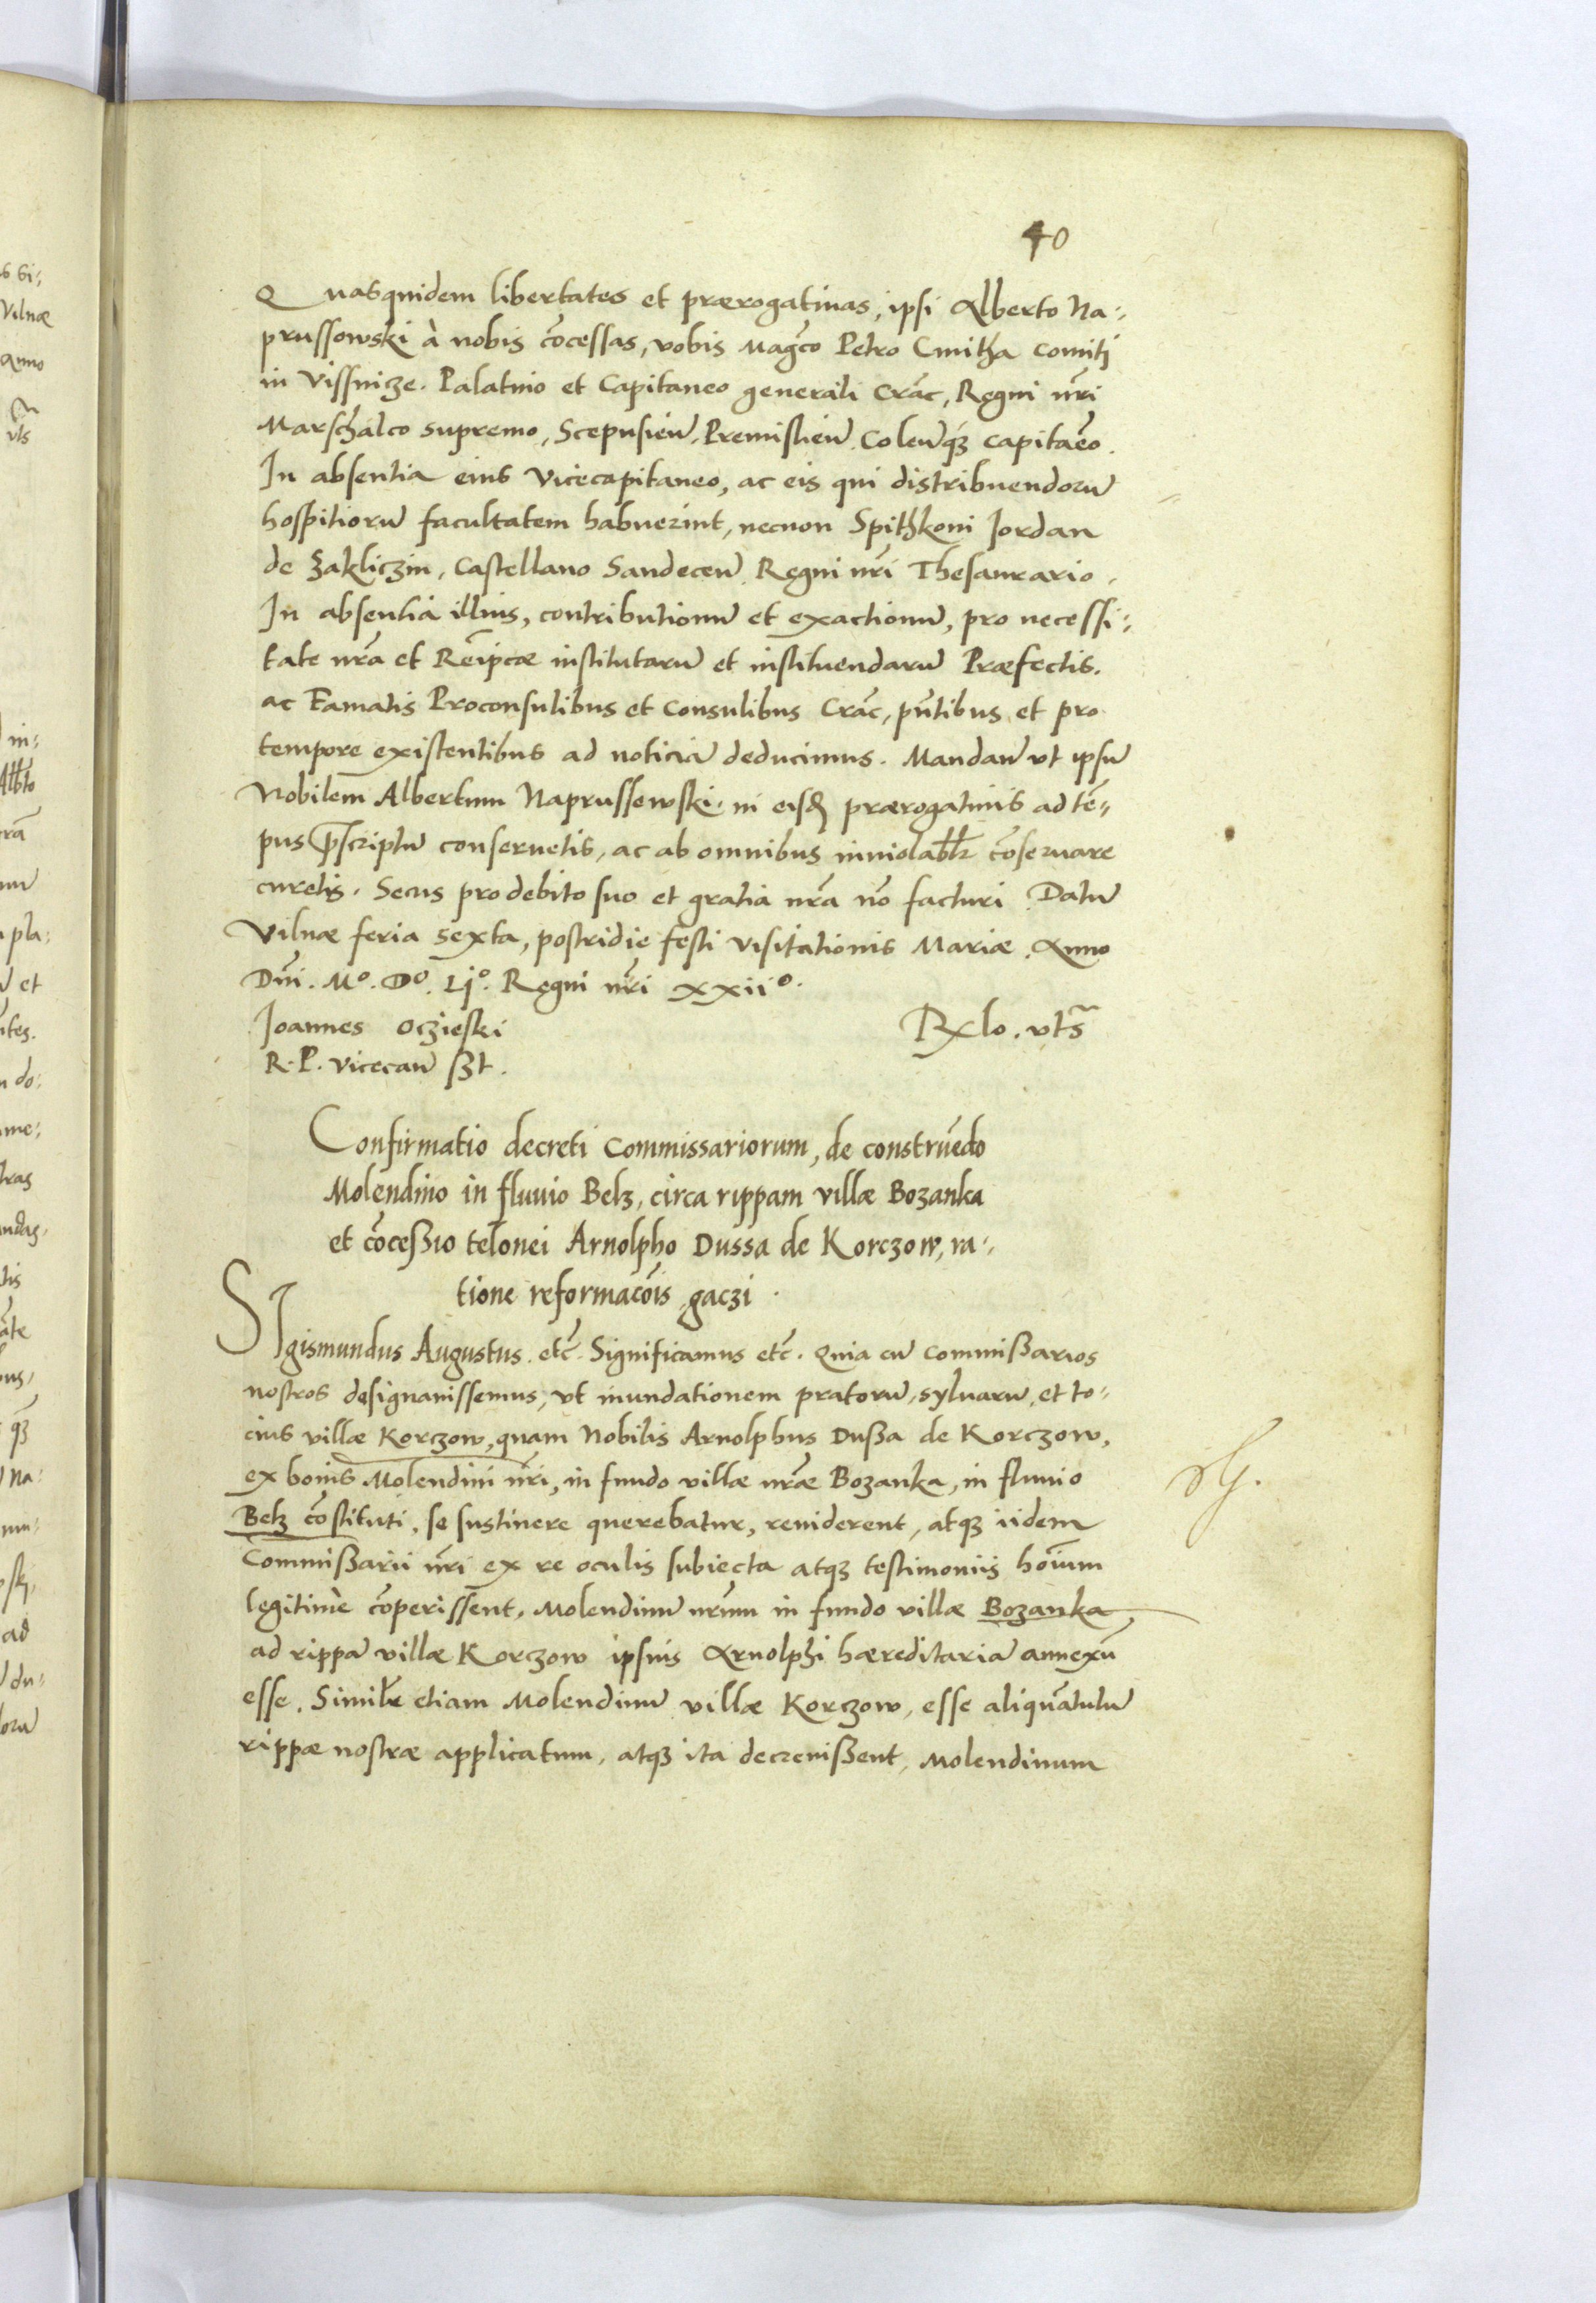 40
Quasquidem libertates et prærogatiuas, ipsi Alberto Na-
prussowski à nobis cõcessas, vobis Magc̃o Petro Cmitha Comiti
in Vissnicze. Palatino et Capitaneo generali Crãc, Regni nr̃i
Marschalco supremo, Scepusien̄, Premislien̄, Colen̄q3 capitan̄eo.
In absentia eius Vicecapitaneo, ac eis qui distribuendorū
hospitiorū facultatem habuerint, necnon Spithkoni Jordan
de Zakliczin, Castellano Sandecen̄ Regni nr̃i Thesaurario,
In absentia illius, contributionū et exactionū, pro necessi-
tate nr̃a et Reip̃cæ institutarū et instituendarū Præfectis.
ac Famatis Proconsulibus et Consulibus Crãc, pn̄tibus et pro
tempore existentibus ad noticiā deducimus. Mandan̄ vt ipsū
Nobilem Albertum Naprussewski in eisd̃ prærogatiuis ad tē-
pus p̄scriptū conseruetis, ac ab omnibus inuiolabl̃r cõseruare
curetis. Secus pro debito suo et gratia nr̃a nō facturi Datū
Vilnæ feria sexta, postridie festi Visitationis Mariæ. Anno
Dñi. Mº. Dº. Ljº. Regni nr̃i xxiiº.
Joannes Oczieski
R. P. Vicecan̄ sst.
Rx lo. vts̃
Confirmatio decreti Commissariorum, de construēdo
Molendino in fluuio Belz, circa rippam villæ Bozanka
et cõceßio telonei Arnolpho Dussa de Korczow, ra-
tione reformacõis gaczi
SIgismundus Augustus. etc̃. Significamus etc̃. Quia cū Commißarios
nostros designauissemus, vt inundationem pratorū, syluarū, et to-
cius villæ Korczow, quam Nobilis Arnolphus Dußa de Korczow,
ex bonis Molendini nr̃i, in fundo villæ nr̃æ Bozanka, in fluuio
Belz cõstituti, se sustinere querebatur, reuiderent, atq3 iidem
Commißarii nr̃i ex re oculis subiecta atq3 testimoniis hoĩum
legitimè cõperissent, Molendinū nr̃um in fundo villæ Bozanka,
ad rippā villæ Korczow ipsius Arnolphi hæreditariā annexū
esse. Simil̃r etiam Molendinū villæ Korczow, esse aliquātulū
rippæ nostræ applicatum, atq3 ita decreuißent, Molendinum